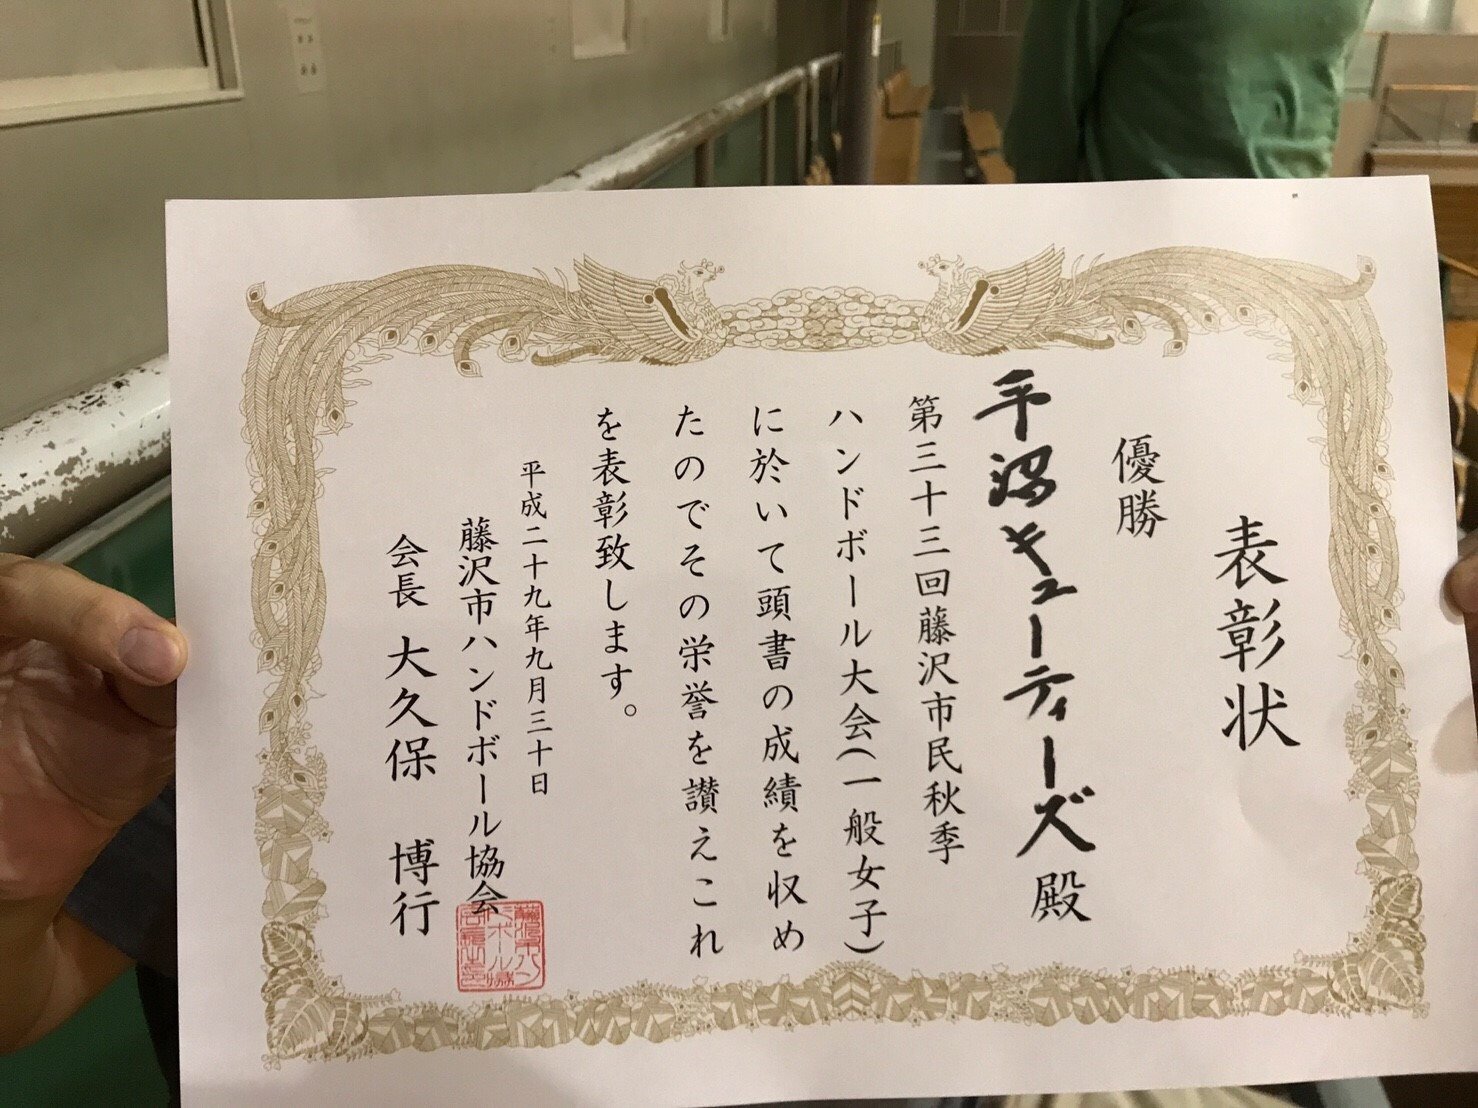 表彰状
優勝
平沼キューティーズ殿
第三十三回藤沢市民秋季
ハンドボール大会(一般女子)
に於いて頭書の成績を収め
たのでその栄誉を讃えこれ
を表彰致します。
平成二十九年九月三十日
藤沢市ハンドボール協会
会長 大久保 博行